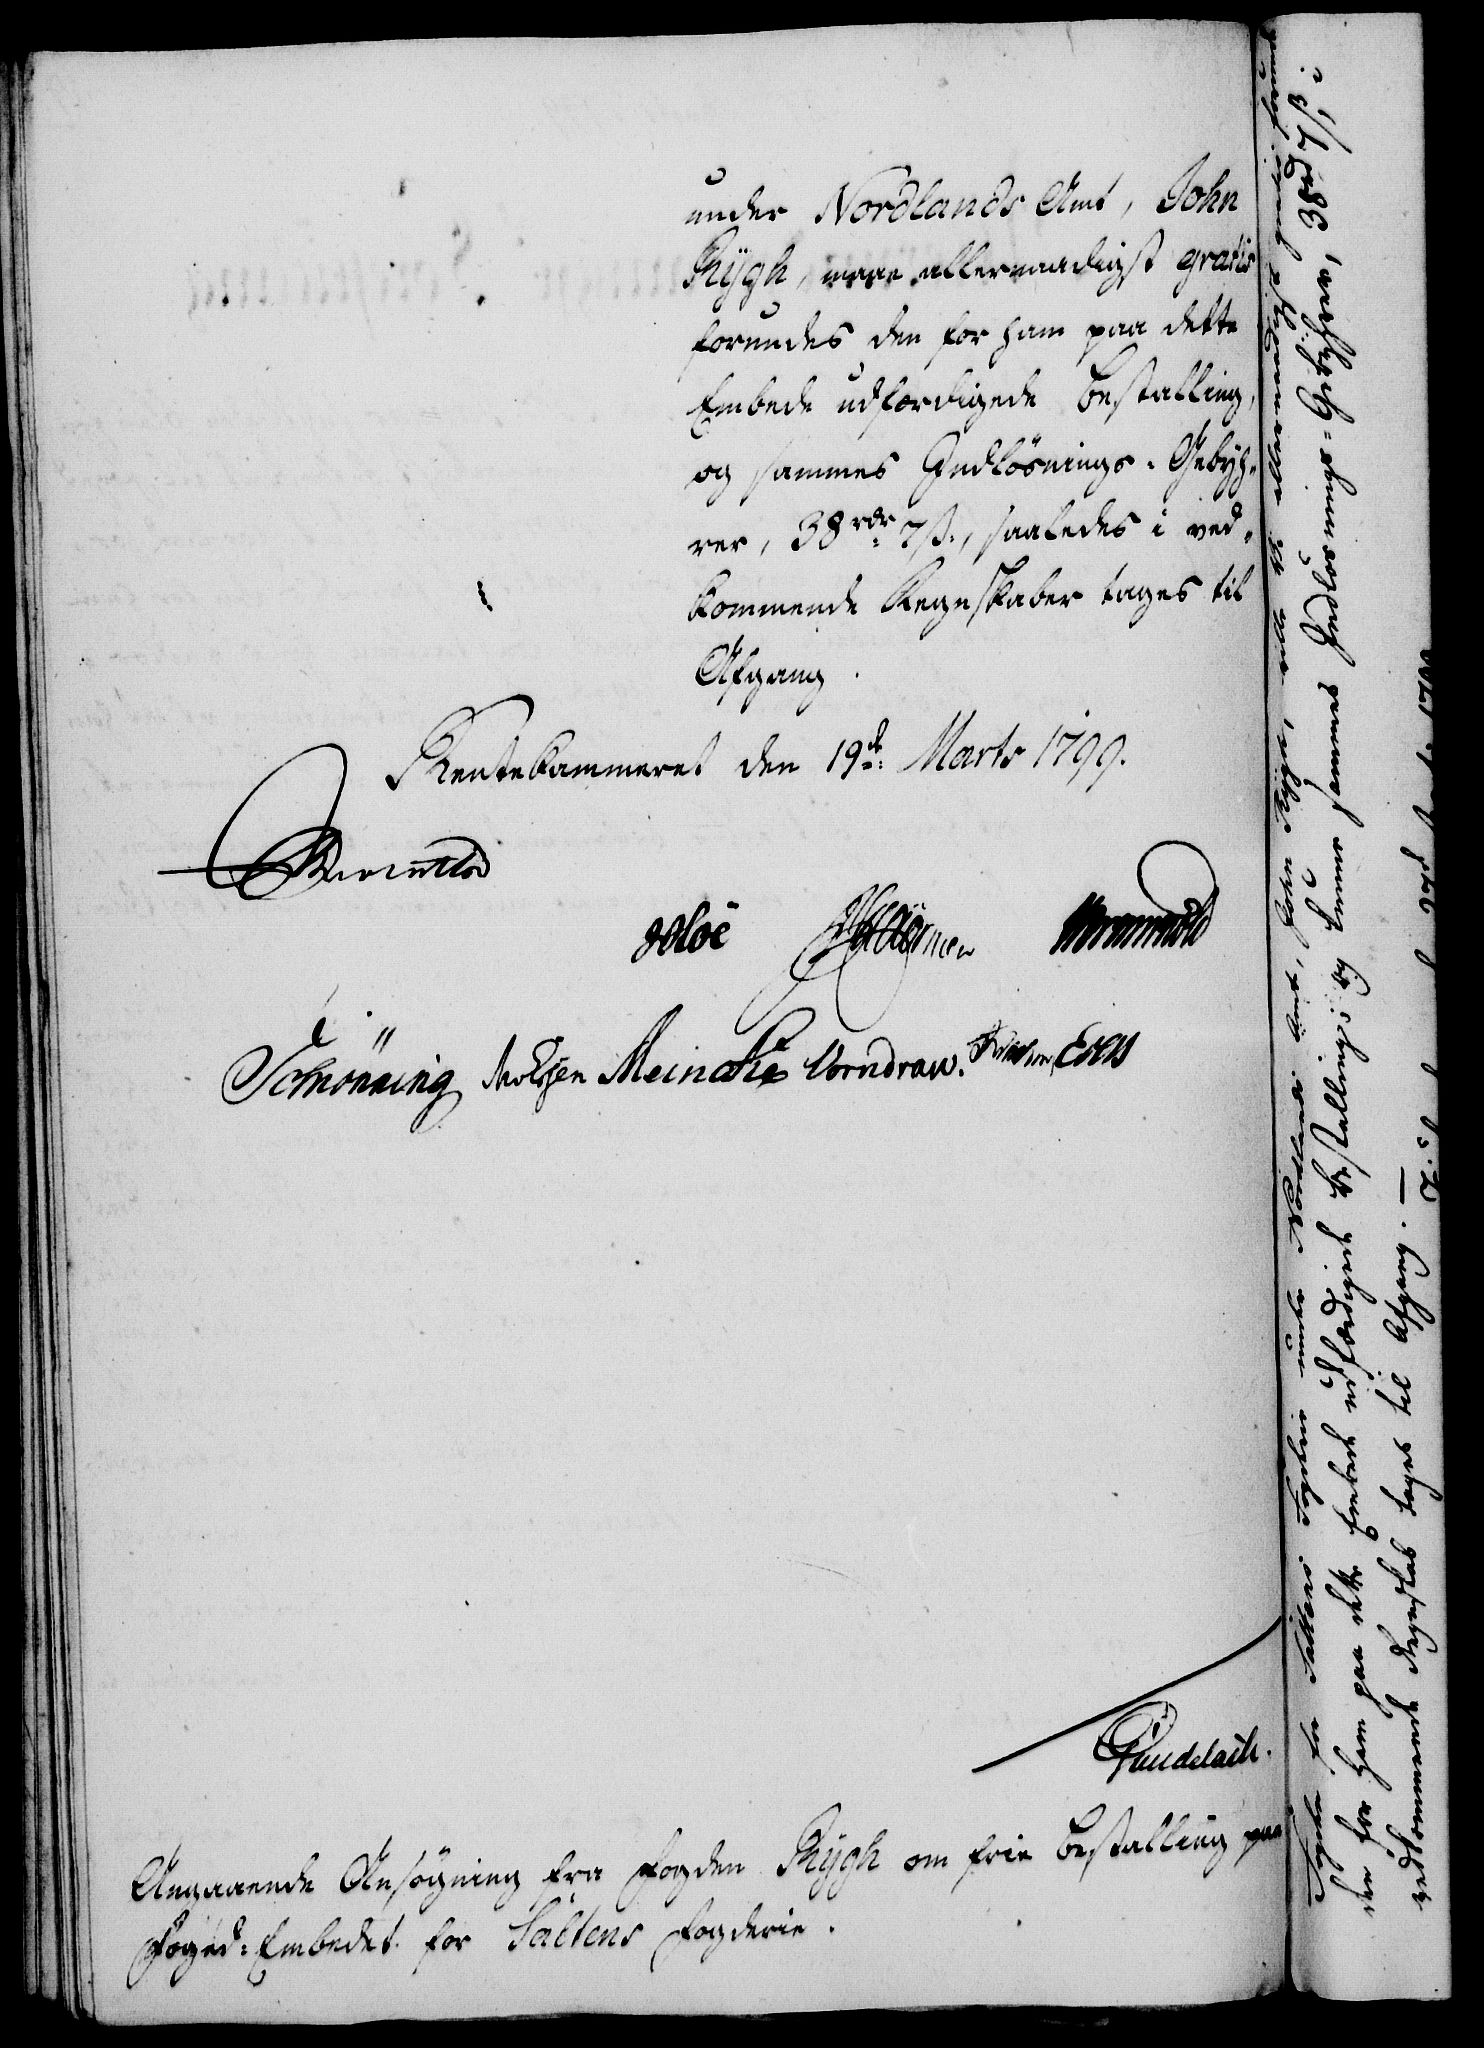 under Nordlands Amt, John
Rÿgh, maae allernaadigst gratis
forundes den for ham paa dette
Embede udfærdigede Bestalling,
og sammes Indløsnings-Gebyh-
rer, 38 rdr 7 ß., saaledes i ved-
kommende Regnskaber tages til
Afgang.
Rentekammeret den 19de Marts 1799.
Schønning Meincke Vorndran.
Angaaende Ansøgning fra Fogden Rÿgh om frie Bestalling paa
Foged-Embedet for Saltens Fogderie.
Foged for Saltens Fogderie under Nordlands Amt, John Rÿgh, maae allernaadigst gratis
den for ham paa dette Embede udfærdigede Bestalling; og kunne sammes Indløsnings-Gebÿhrer, 38 rd 7 ß, i
vedkommende Regnskab tages til Afgang. —